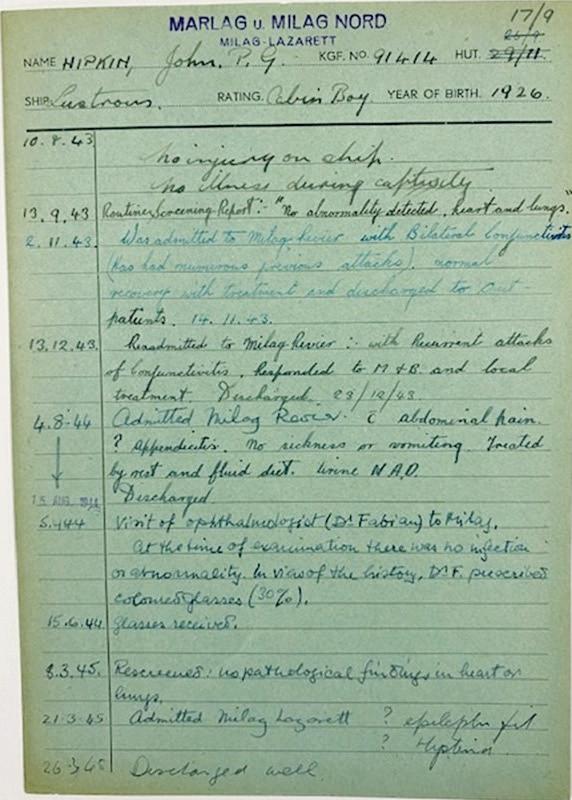 MARLAG u. MILAG NORD
MILAG-LAZARETT
17/9
26/9
NAME HIPKIN, John. P. G. KGF. NO. 91414 HUT. 29/11
SHIP Lustrous. RATING. Cabin Boy YEAR OF BIRTH. 1926.
10.8.43
No injury on ship.
No illness during captivity
13.9.43 Routine Screening Report:- "No abnormality detected, heart and lungs."
2.11.43. Was admitted to Milag Revier with Bilateral Conjunctivitis
(has had numerous previous attacks). normal
recovery with treatment and discharged to out-
patients. 14.11.43.
13.12.43. Readmitted to Milag Revier:- with Recurrent attacks
of Conjunctivitis. Responded to M & B. and local
treatment. Discharged. 23/12/43.
4.8.44 Admitted Milag Revier. c̄ abdominal pain.
? Appendicitis. No sickness or vomiting. Treated
by rest and fluid diet. Urine N.A.D.
15 AUG. 1944 Discharged
5.4.44 Visit of ophthalmologist (Dr Fabian) to Milag.
At the time of examination there was no infection
or abnormality. In view of the history, Dr F. prescribed
coloured glasses (30%).
15.6.44 Glasses received.
8.3.45. Rescreened: no pathological findings in heart or
lungs.
21-3-45 Admitted Milag Lazarett ? epileptic fit
? Hysteria
26-3-45 Discharged well.